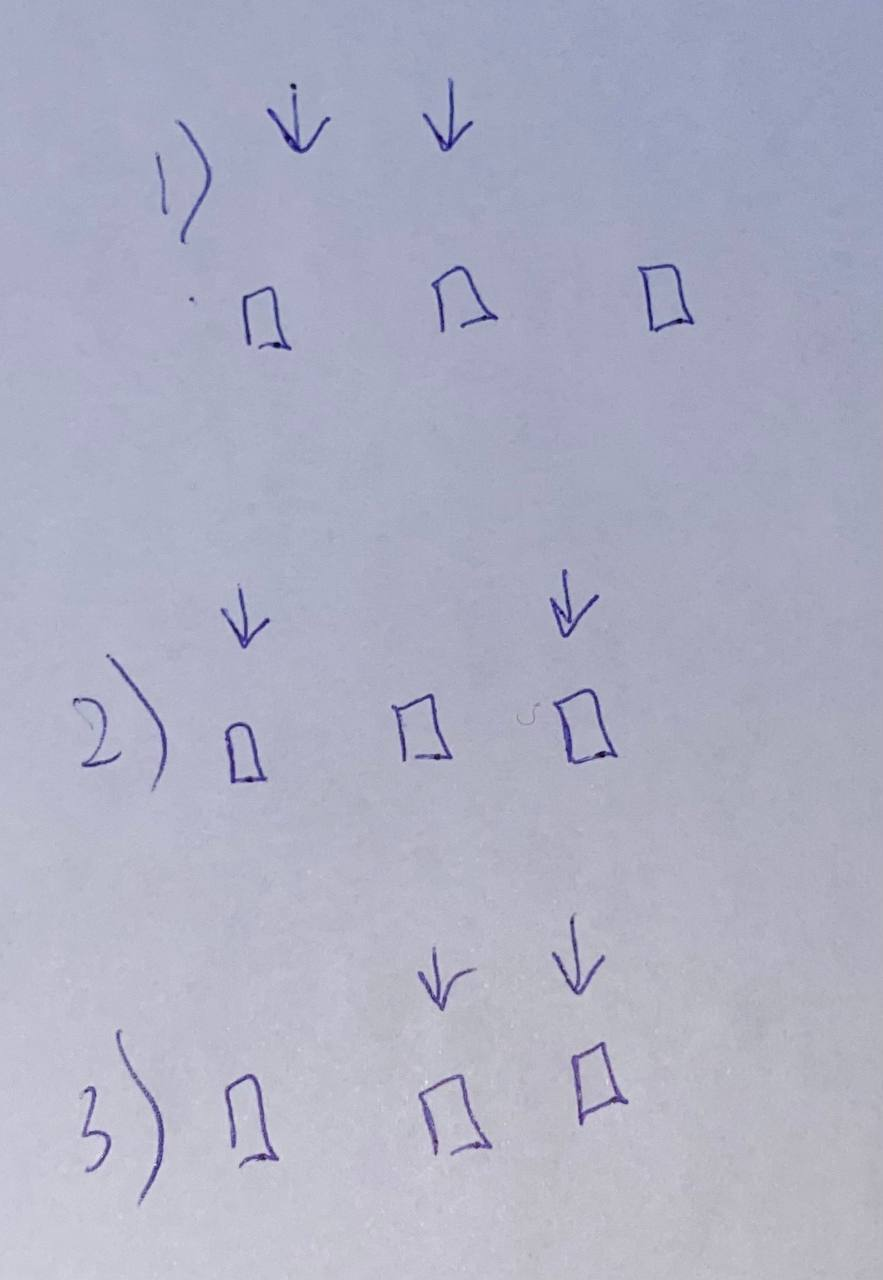 1)
2)
3)